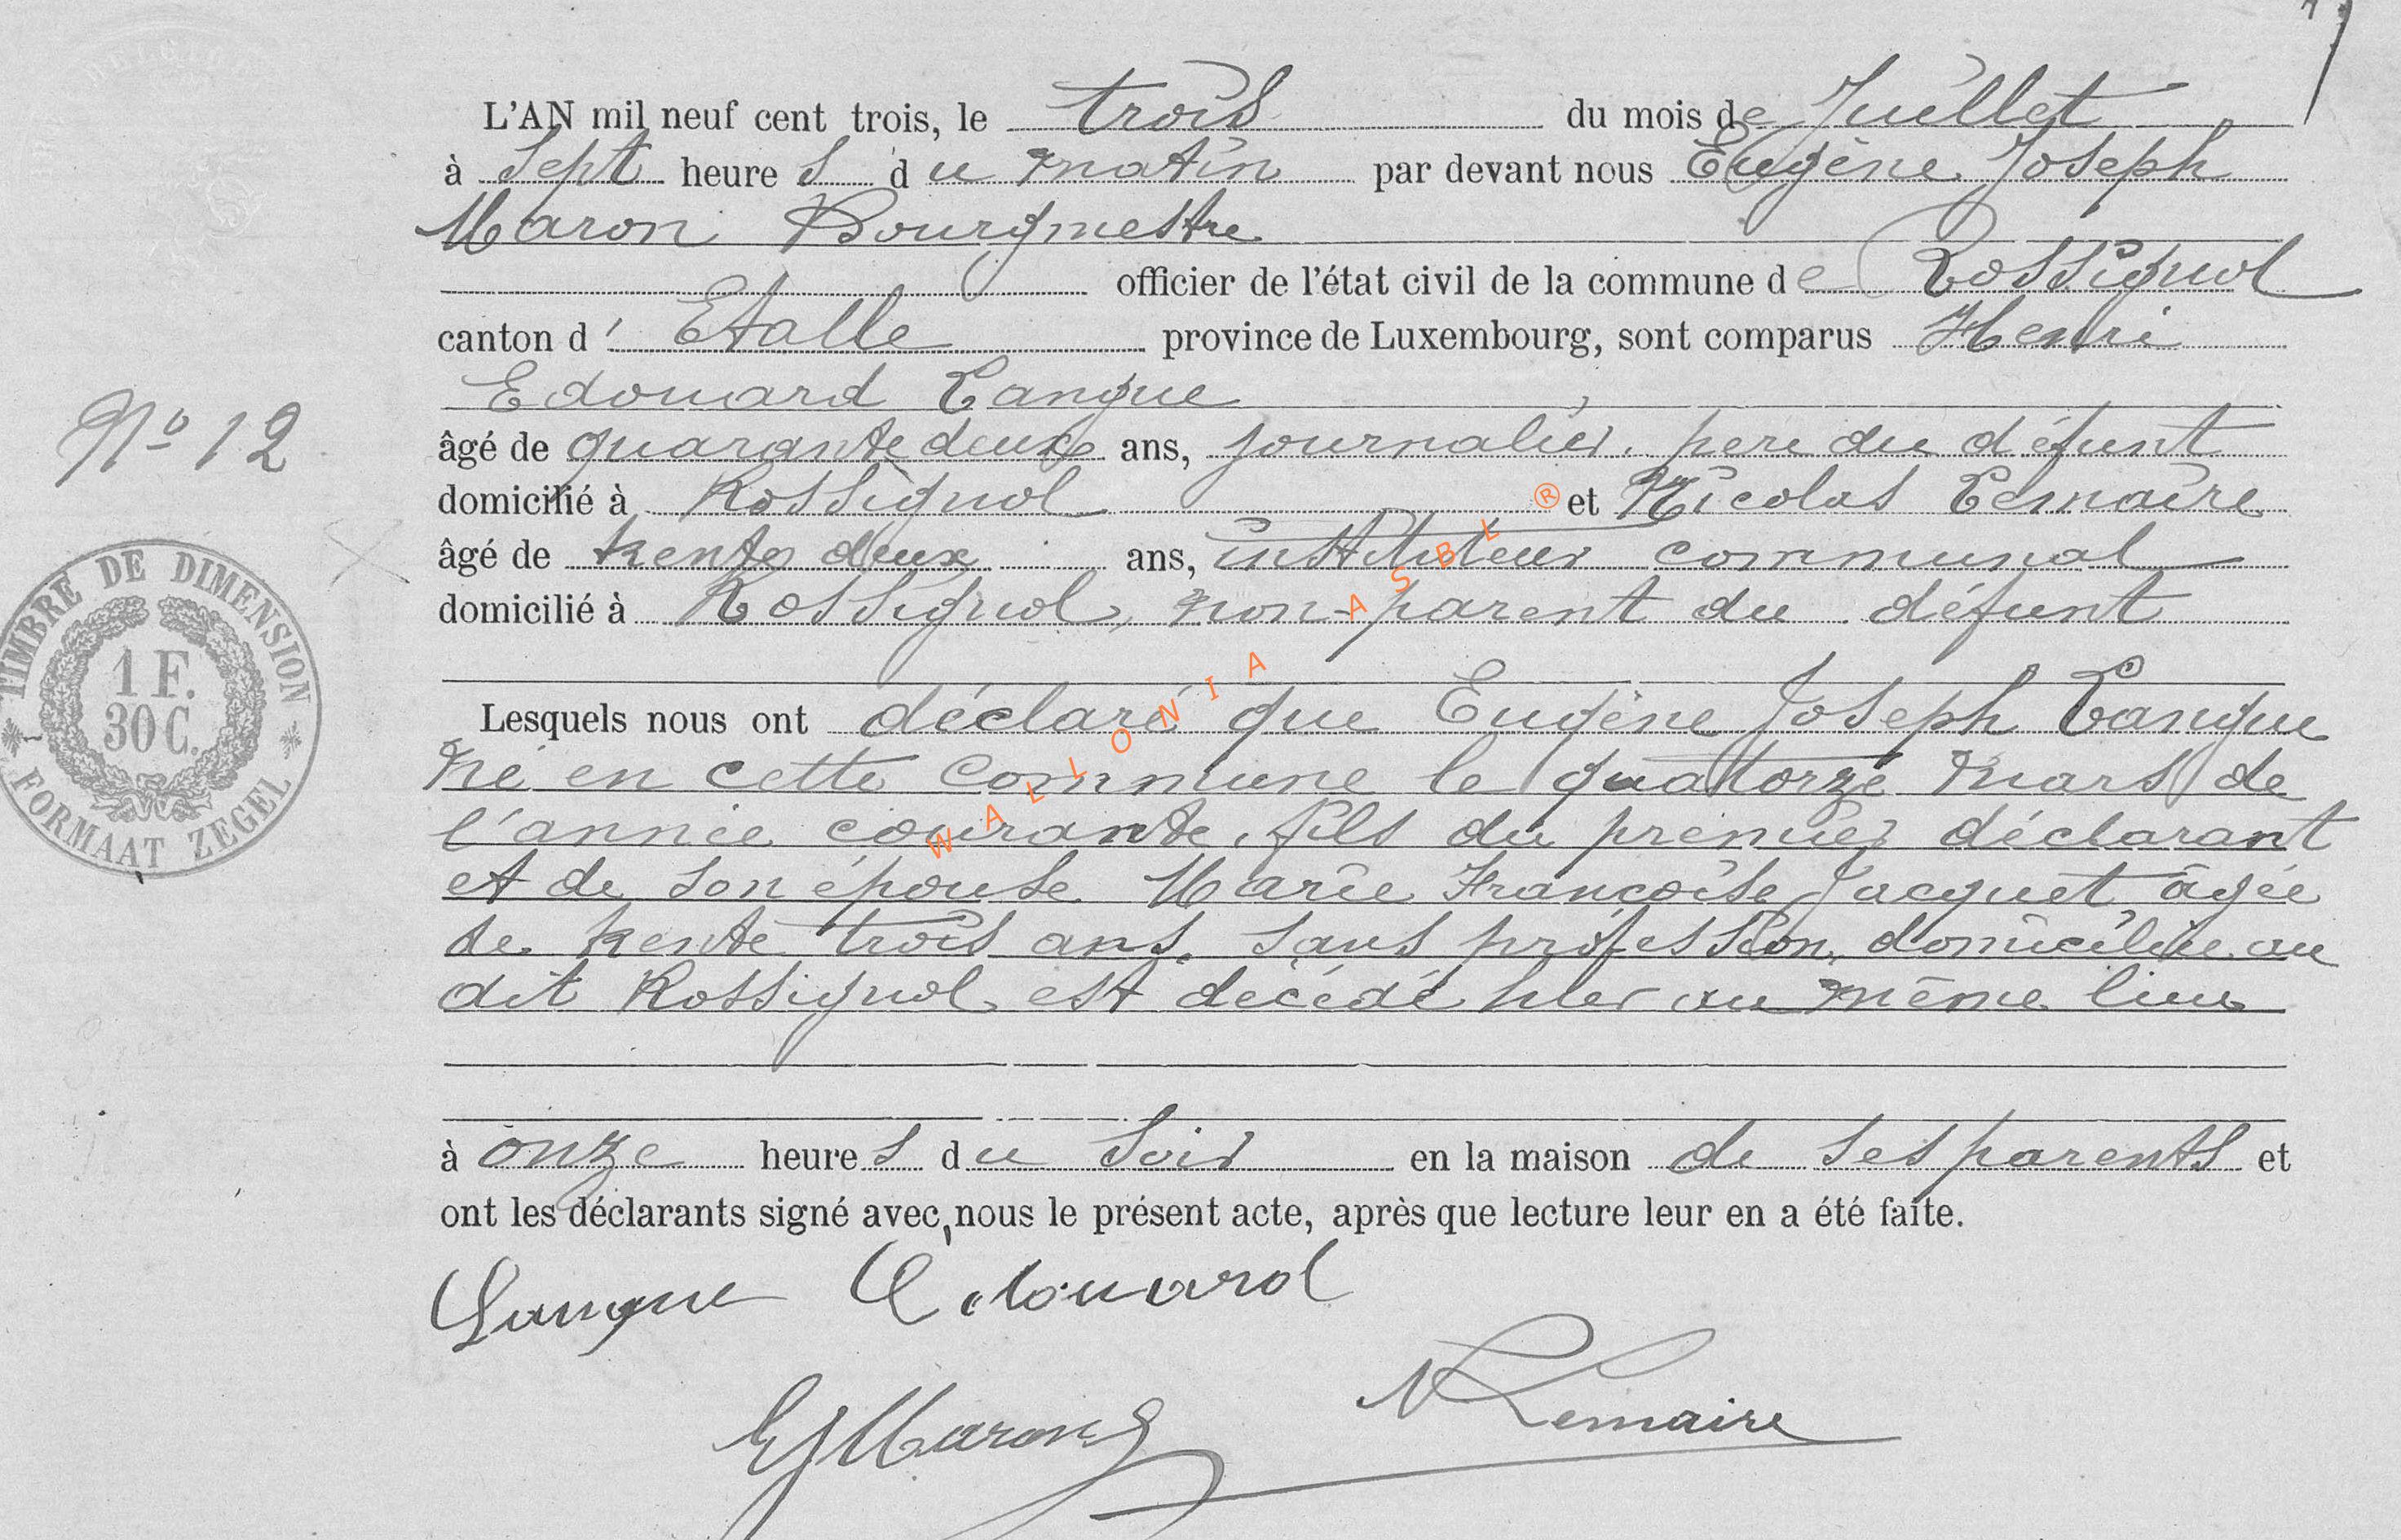 L'AN mil neuf cent trois, le trois du mois de Juillet
à sept heures du matin par devant nous Eugène Joseph
Maron Bourgmestre
officier de l'état civil de la commune de Rossignol
canton d'Etalle province de Luxembourg, sont comparus Henri
Edouard Langue
âgé de quarante deux ans, journalier, père du défunt
domicilié à Rossignol et Nicolas Lemaire
âgé de trente deux ans, instituteur communal
domicilié à Rossignol, non-parent du défunt
Lesquels nous ont déclaré que Eugène Joseph Langue
né en cette commune le quatorze mars de
l'année courante, fils du premier déclarant
et de son épouse Marie Françoise Jacquet âgée
de trente trois ans, sans profession, domiciliée au
dit Rossignol est décédé hier au même lieu
à onze heures du soir en la maison de ses parents et
ont les déclarants signé avec nous le présent acte, après que lecture leur en a été faite.
Langue Edouard
EJMaron
NLemaire
No 12
TIMBRE DE DIMENSION
1 F.
30 C.
FORMAAT ZEGEL
WALLONIA ASBL ®